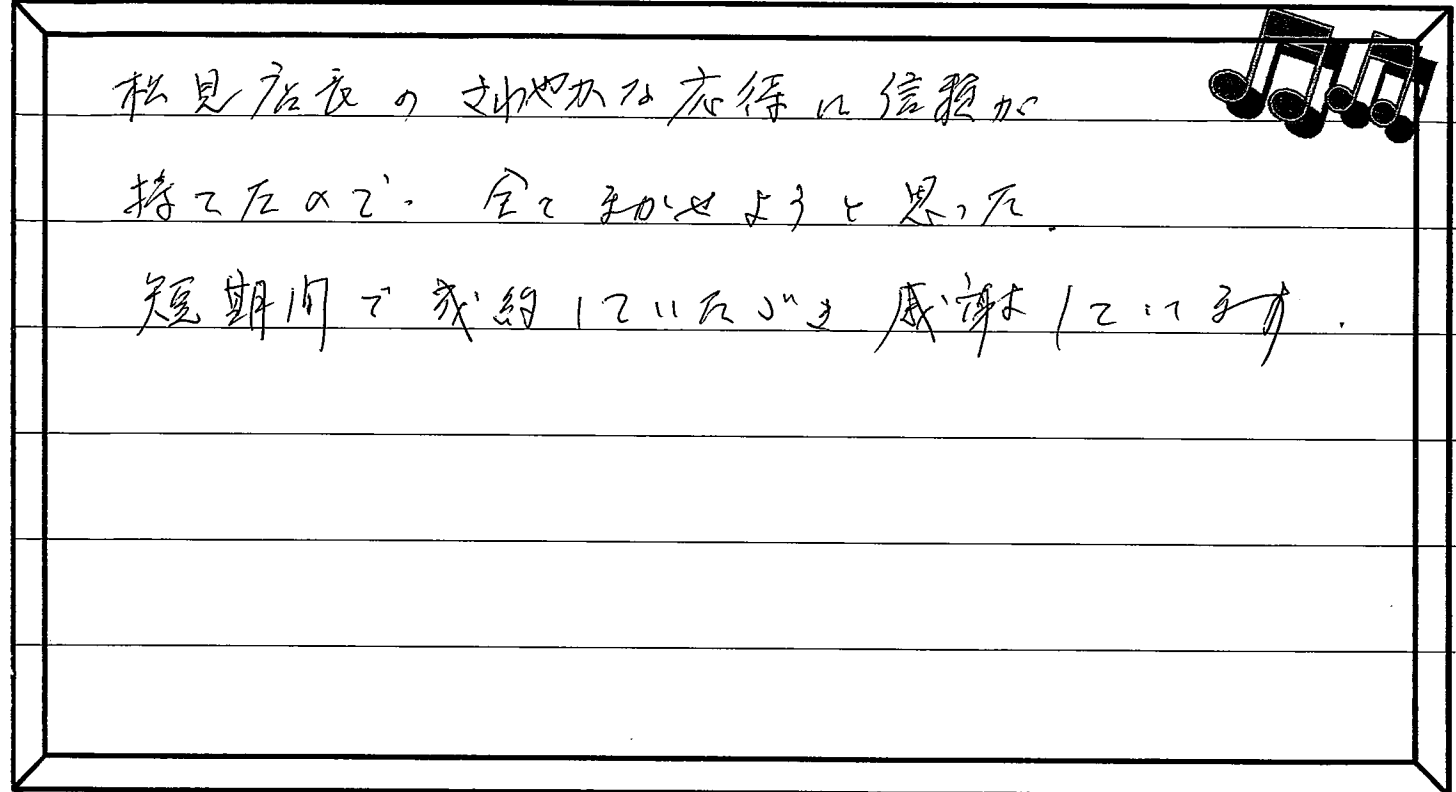 松見店長のさわやかな応待に信頼が
持てたので、全てまかせようと思った。
短期間で成約していただき感謝しています。